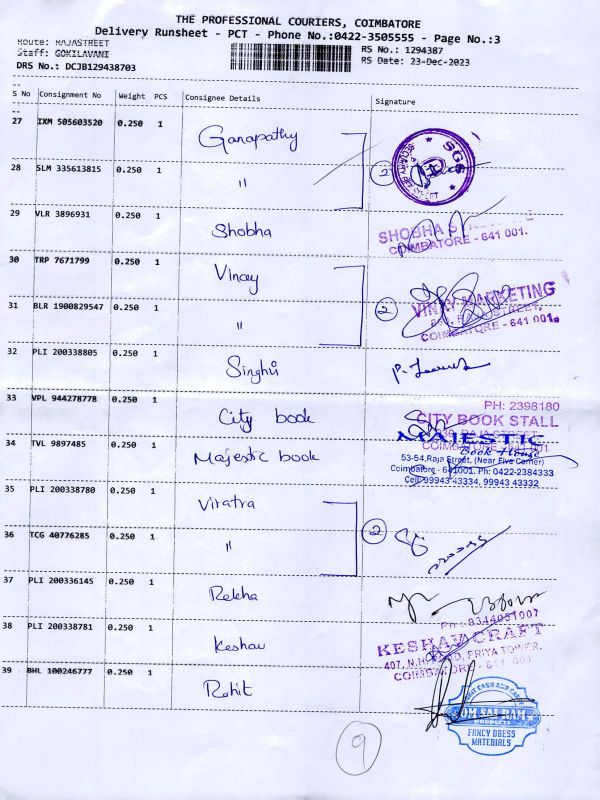 THE PROFESSIONAL COURIERS, COIMBATORE
Delivery Runsheet - PCT - Phone No.:0422-3505555 - Page No.:3
Route: RAJASTREET
Staff: GOKILAVANI
DRS No.: DCJB129438703
RS No.: 1294387
RS Date: 23-Dec-2023
S No Consignment No Weight PCS Consignee Details Signature
27 IXM 505603520 0.250 1 Ganapathy
28 SLM 335613815 0.250 1 " 2
SGS
29 VLR 3896931 0.250 1 Shobha
SHOBHA
COIMBATORE - 641 001.
30 TRP 7671799 0.250 1 Vinay
31 BLR 1900829547 0.250 1 " 2
VINAY MARKETING
COIMBATORE - 641 001.
32 PLI 200338805 0.250 1 Singhvi
33 VPL 944278778 0.250 1 City book
PH: 2398180
CITY BOOK STALL
RAJA STREET
COIMBATORE
34 TVL 9897485 0.250 1 Majestic book
MAJESTIC
Book House
53-54,Raja Street, (Near Five Corner)
Coimbatore - 641001. Ph: 0422-2384333
Cell: 99943 43334, 99943 43332
35 PLI 200338780 0.250 1 Viratra
36 TCG 40776285 0.250 1 " 2
37 PLI 200336145 0.250 1 Rekha
38 PLI 200338781 0.250 1 Keshav
KESHAV CRAFT
PRIYA TOWER,
COIMBATORE - 641 001
39 BHL 100246777 0.250 1 Rohit
OM SAI RAM
PRODUCTS
FANCY DRESS
MATERIALS
9